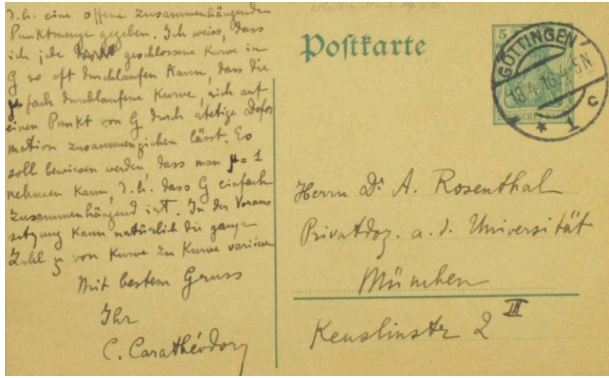 d.h. eine offene zusammenhängenden
Punktmenge gegeben. Ich weiss, dass
ich jede geschlossene Kurve in
G so oft durchlaufen kann, dass die
μ fach durchlaufene Kurve, sich auf
einen Punkt von G durch stetige Defor
mation zusammenziehen lässt. Es
soll bewiesen werden, dass man μ = 1
nehmen kann, d.h. dass G einfach
zusammenhängend ist. In der Voraus
setzung kann natürlich die ganze
Zahl μ von Kurve zu Kurve variieren
Mit bestem Gruss
Ihr
C. Carathéodory
Postkarte
5
GÖTTINGEN
18.4.16.4-5N
* * 1 c
Herrn Dr A. Rosenthal
Privatdoz. a. d. Universität
München
Keuslinstr 2 III